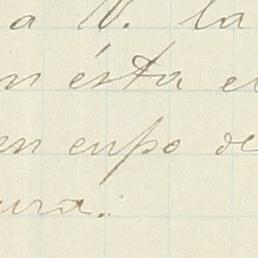 a V. la
n ésta e
en cupo de
ura.